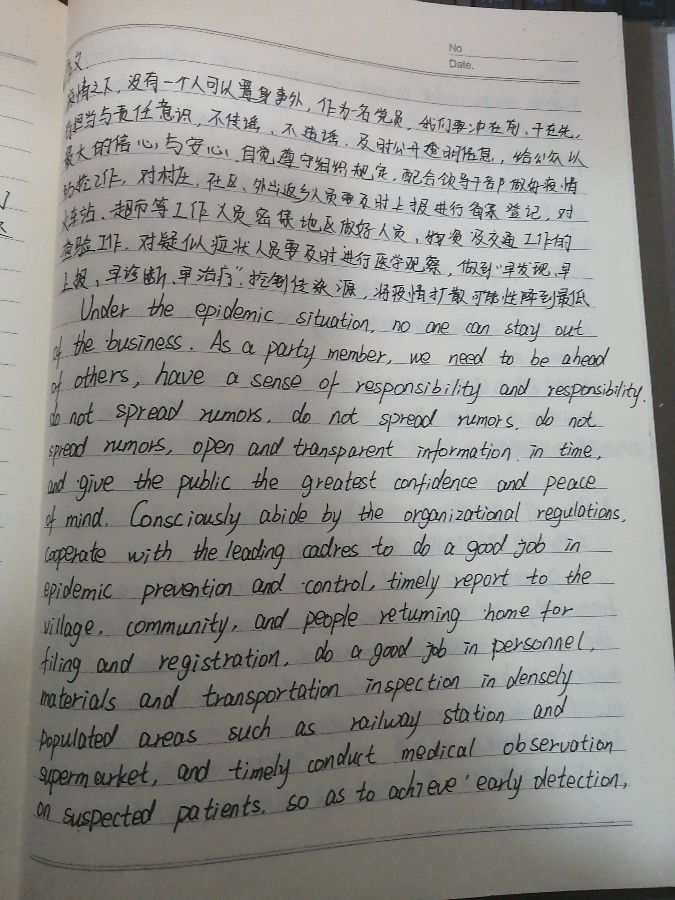 No
Date.
文
疫情之下，没有一个人可以置身事外，作为一名党员，我们要冲在前，干在先，
担当与责任意识，不传谣、不造谣，及时公开透明信息，给公众以
最大的信心与安心，自觉遵守组织规定，配合领导干部做好疫情
防控工作，对村庄，社区、外出返乡人员要及时上报进行备案登记，对
火车站、超市等工作人员密集地区做好人员，物资及交通工作的
检验工作，对疑似症状人员要及时进行医学观察，做到“早发现、早
上报、早诊断、早治疗”控制传染源，将疫情扩散可能性降到最低
Under the epidemic situation, no one can stay out
of the business. As a party member, we need to be ahead
of others, have a sense of responsibility and responsibility.
do not spread rumors, do not spread rumors, do not
spread rumors, open and transparent information in time,
and give the public the greatest confidence and peace
of mind. Consciously abide by the organizational regulations,
cooperate with the leading cadres to do a good job in
epidemic prevention and control, timely report to the
village, community, and people returning home for
filing and registration, do a good job in personnel,
materials and transportation inspection in densely
populated areas such as railway station and
supermarket, and timely conduct medical observation
on suspected patients, so as to achieve 'early detection,